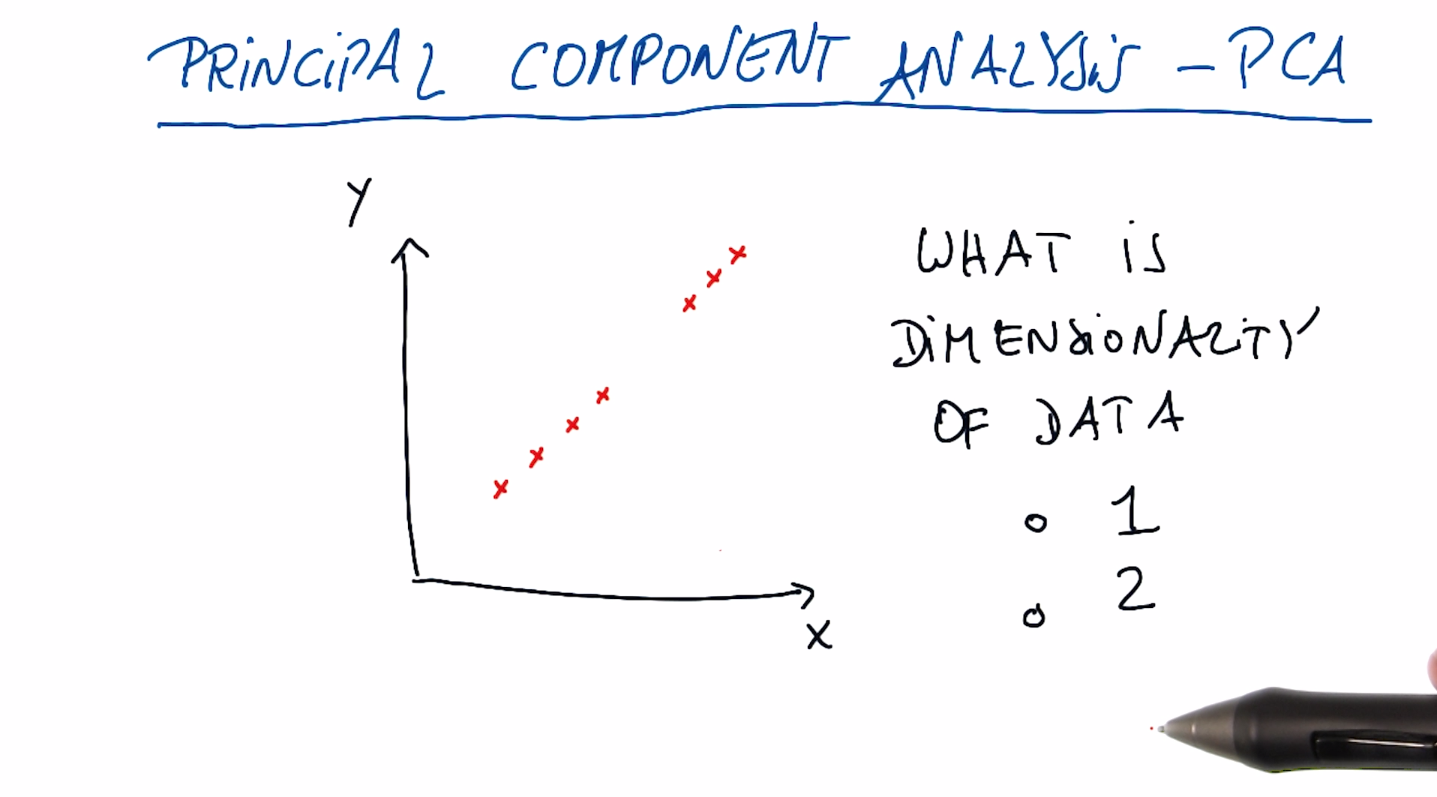 PRINCIPAL COMPONENT ANALYSIS - PCA
Y
WHAT IS
DIMENSIONALITY
OF DATA
o 1
o 2
X